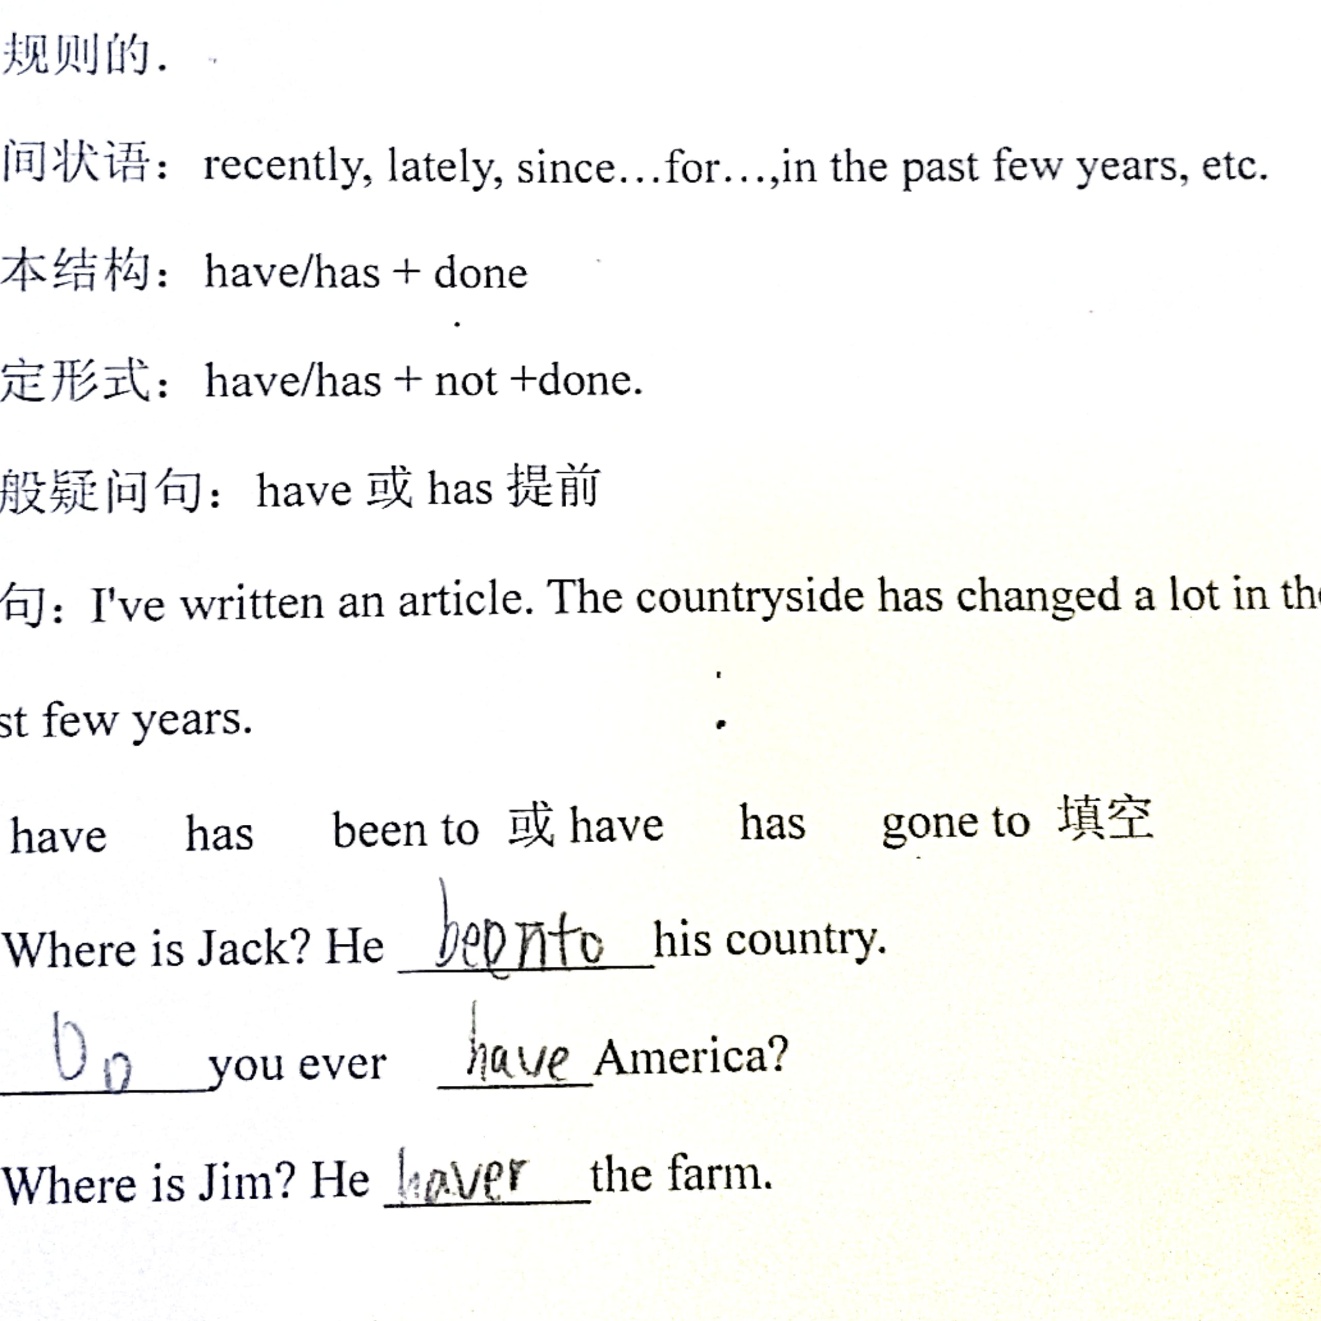 规则的.
间状语： recently, lately, since…for…,in the past few years, etc.
本结构： have/has + done
定形式： have/has + not +done.
般疑问句： have 或 has 提前
句：I've written an article. The countryside has changed a lot in the
st few years.
have has been to 或 have has gone to 填空
Where is Jack? He beento his country.
Do you ever have America?
Where is Jim? He haver the farm.